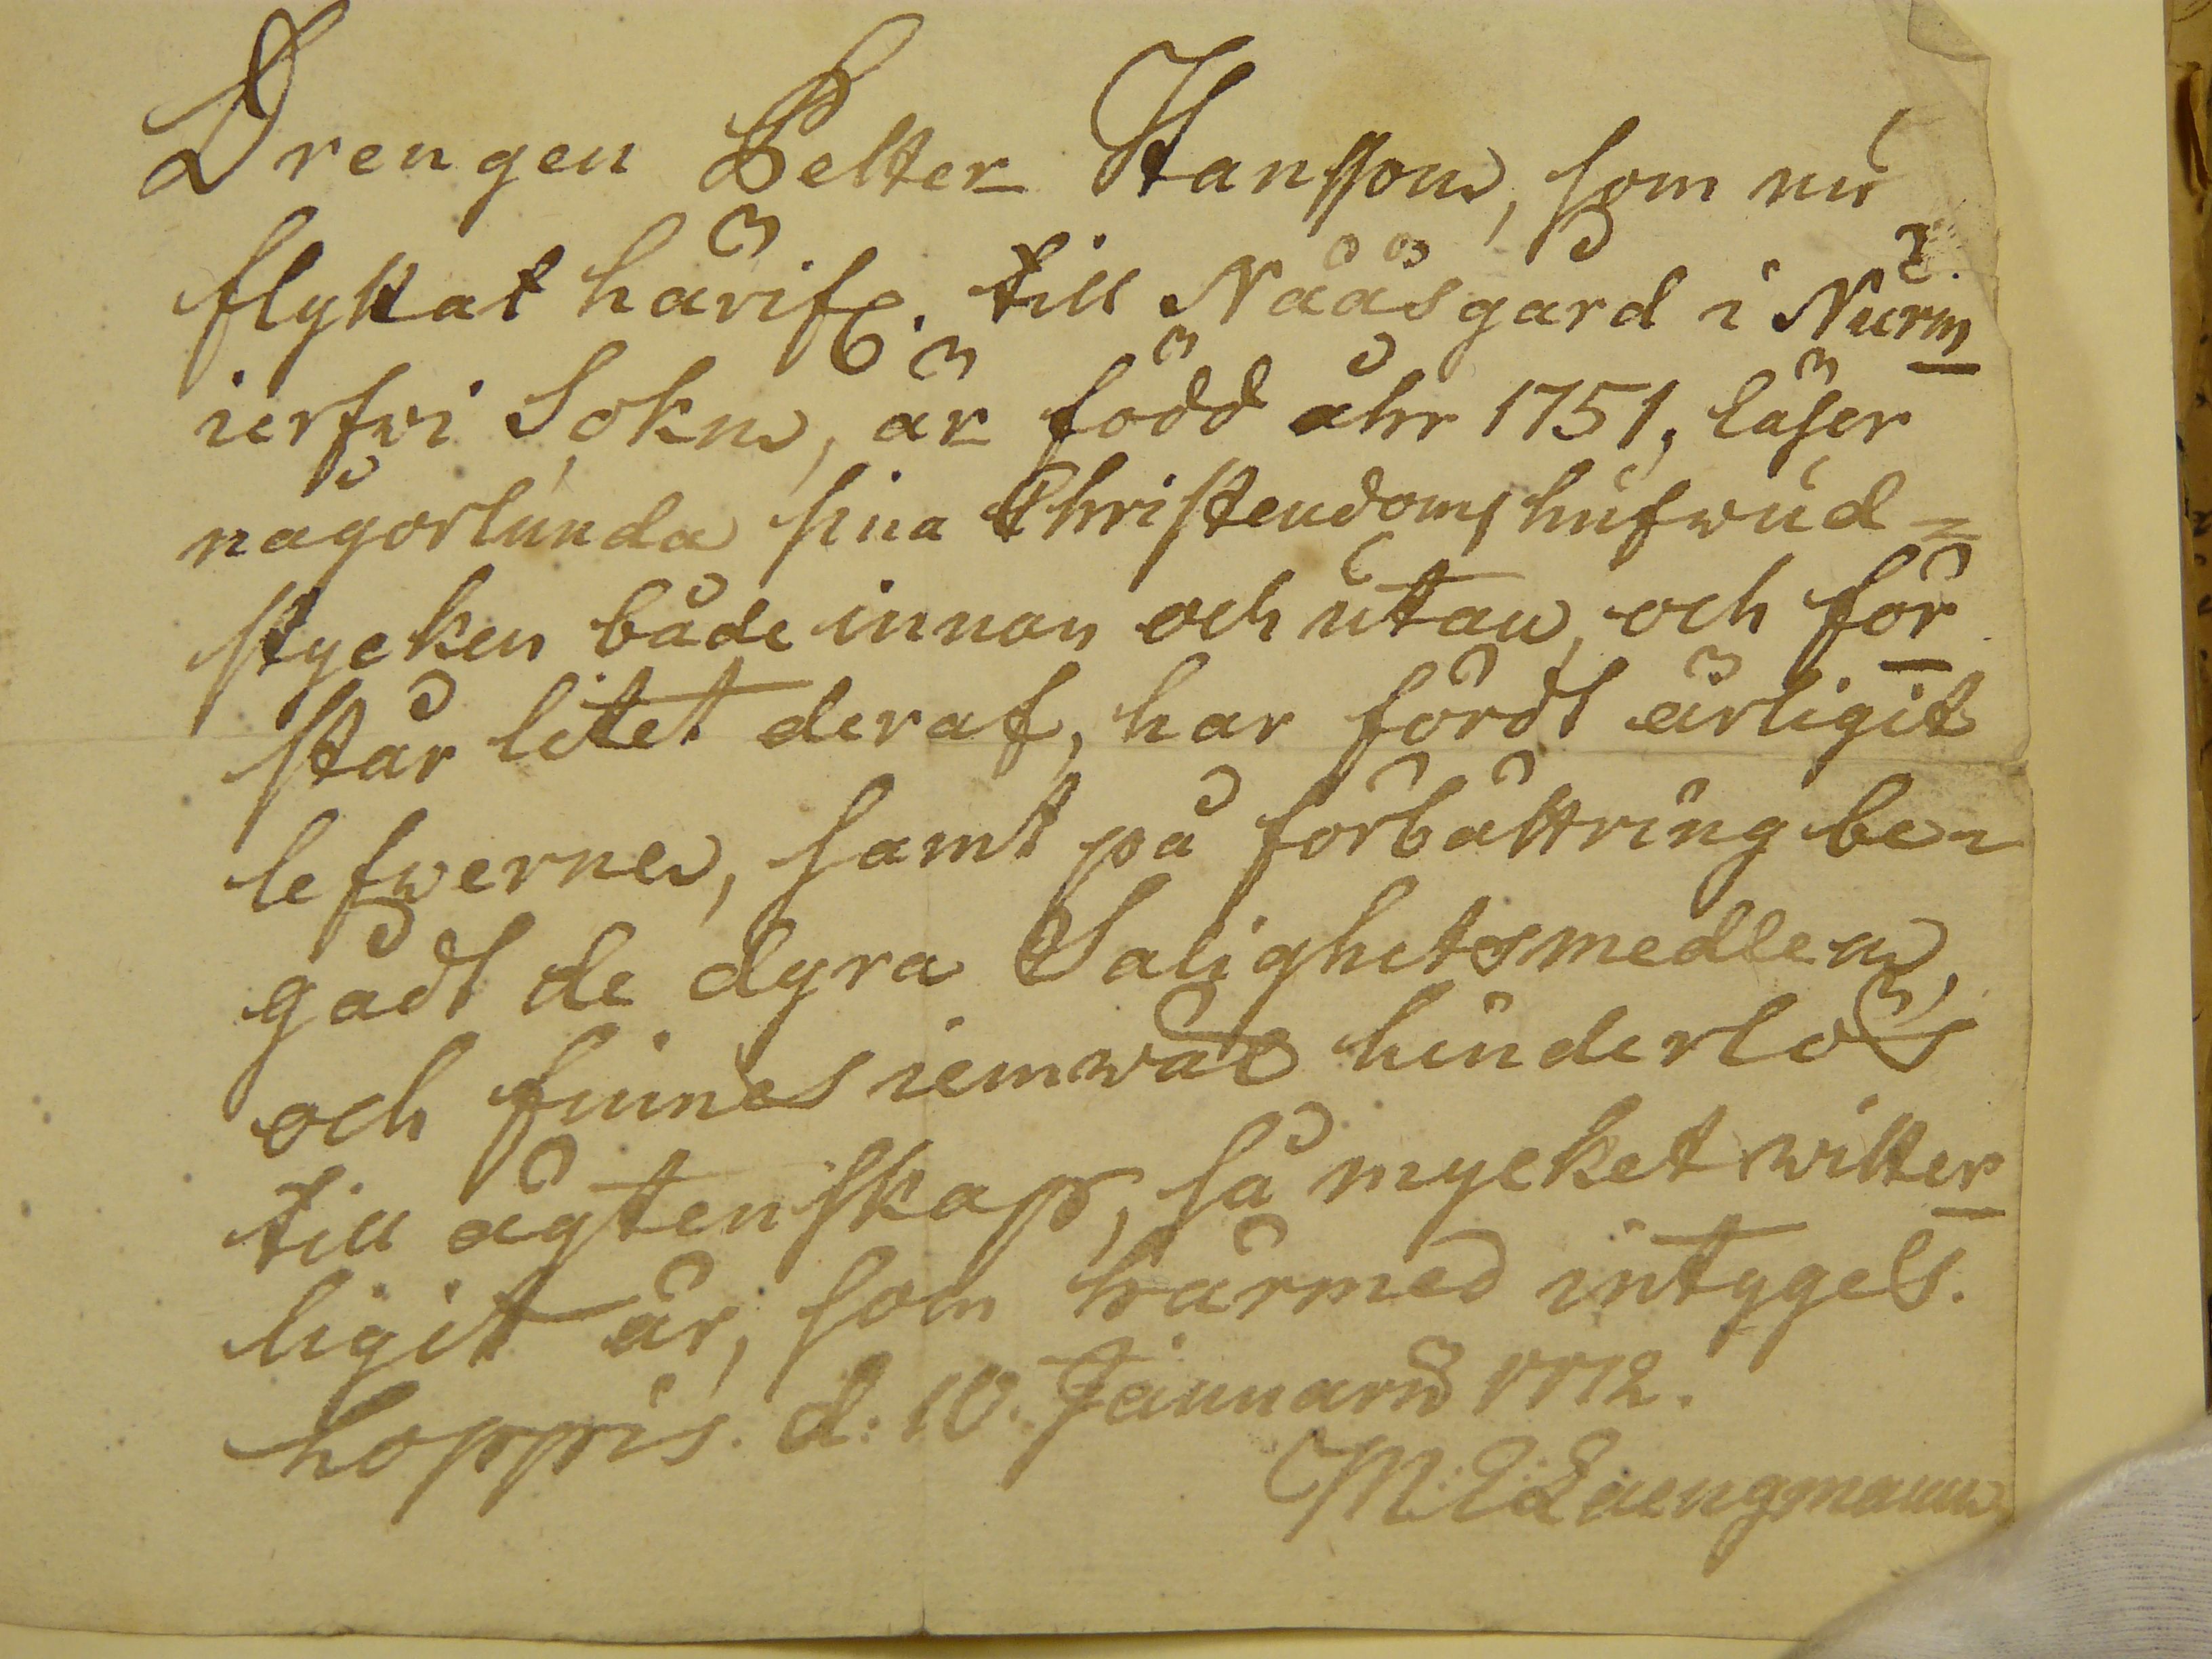 Drengen Petter Hansson, som nu
flyttat härifr. till Nääsgård i Nurm
ierfvi Sokn, är född åhr 1751, läser
någorlunda sina Christendoms hufwud=
stycken både innan och utan, och för
står litet deraf, har fördt ärligit
lefwerne, samt på förbättring be=
gådt de dyra Salighetsmedlen,
och finnes iemwäl hinderlös
till ägtenskap, så mycket witter
ligit är, som härmed intyges.
hoppis. d: 10. Januarii 1772.
M: E: Laengmann